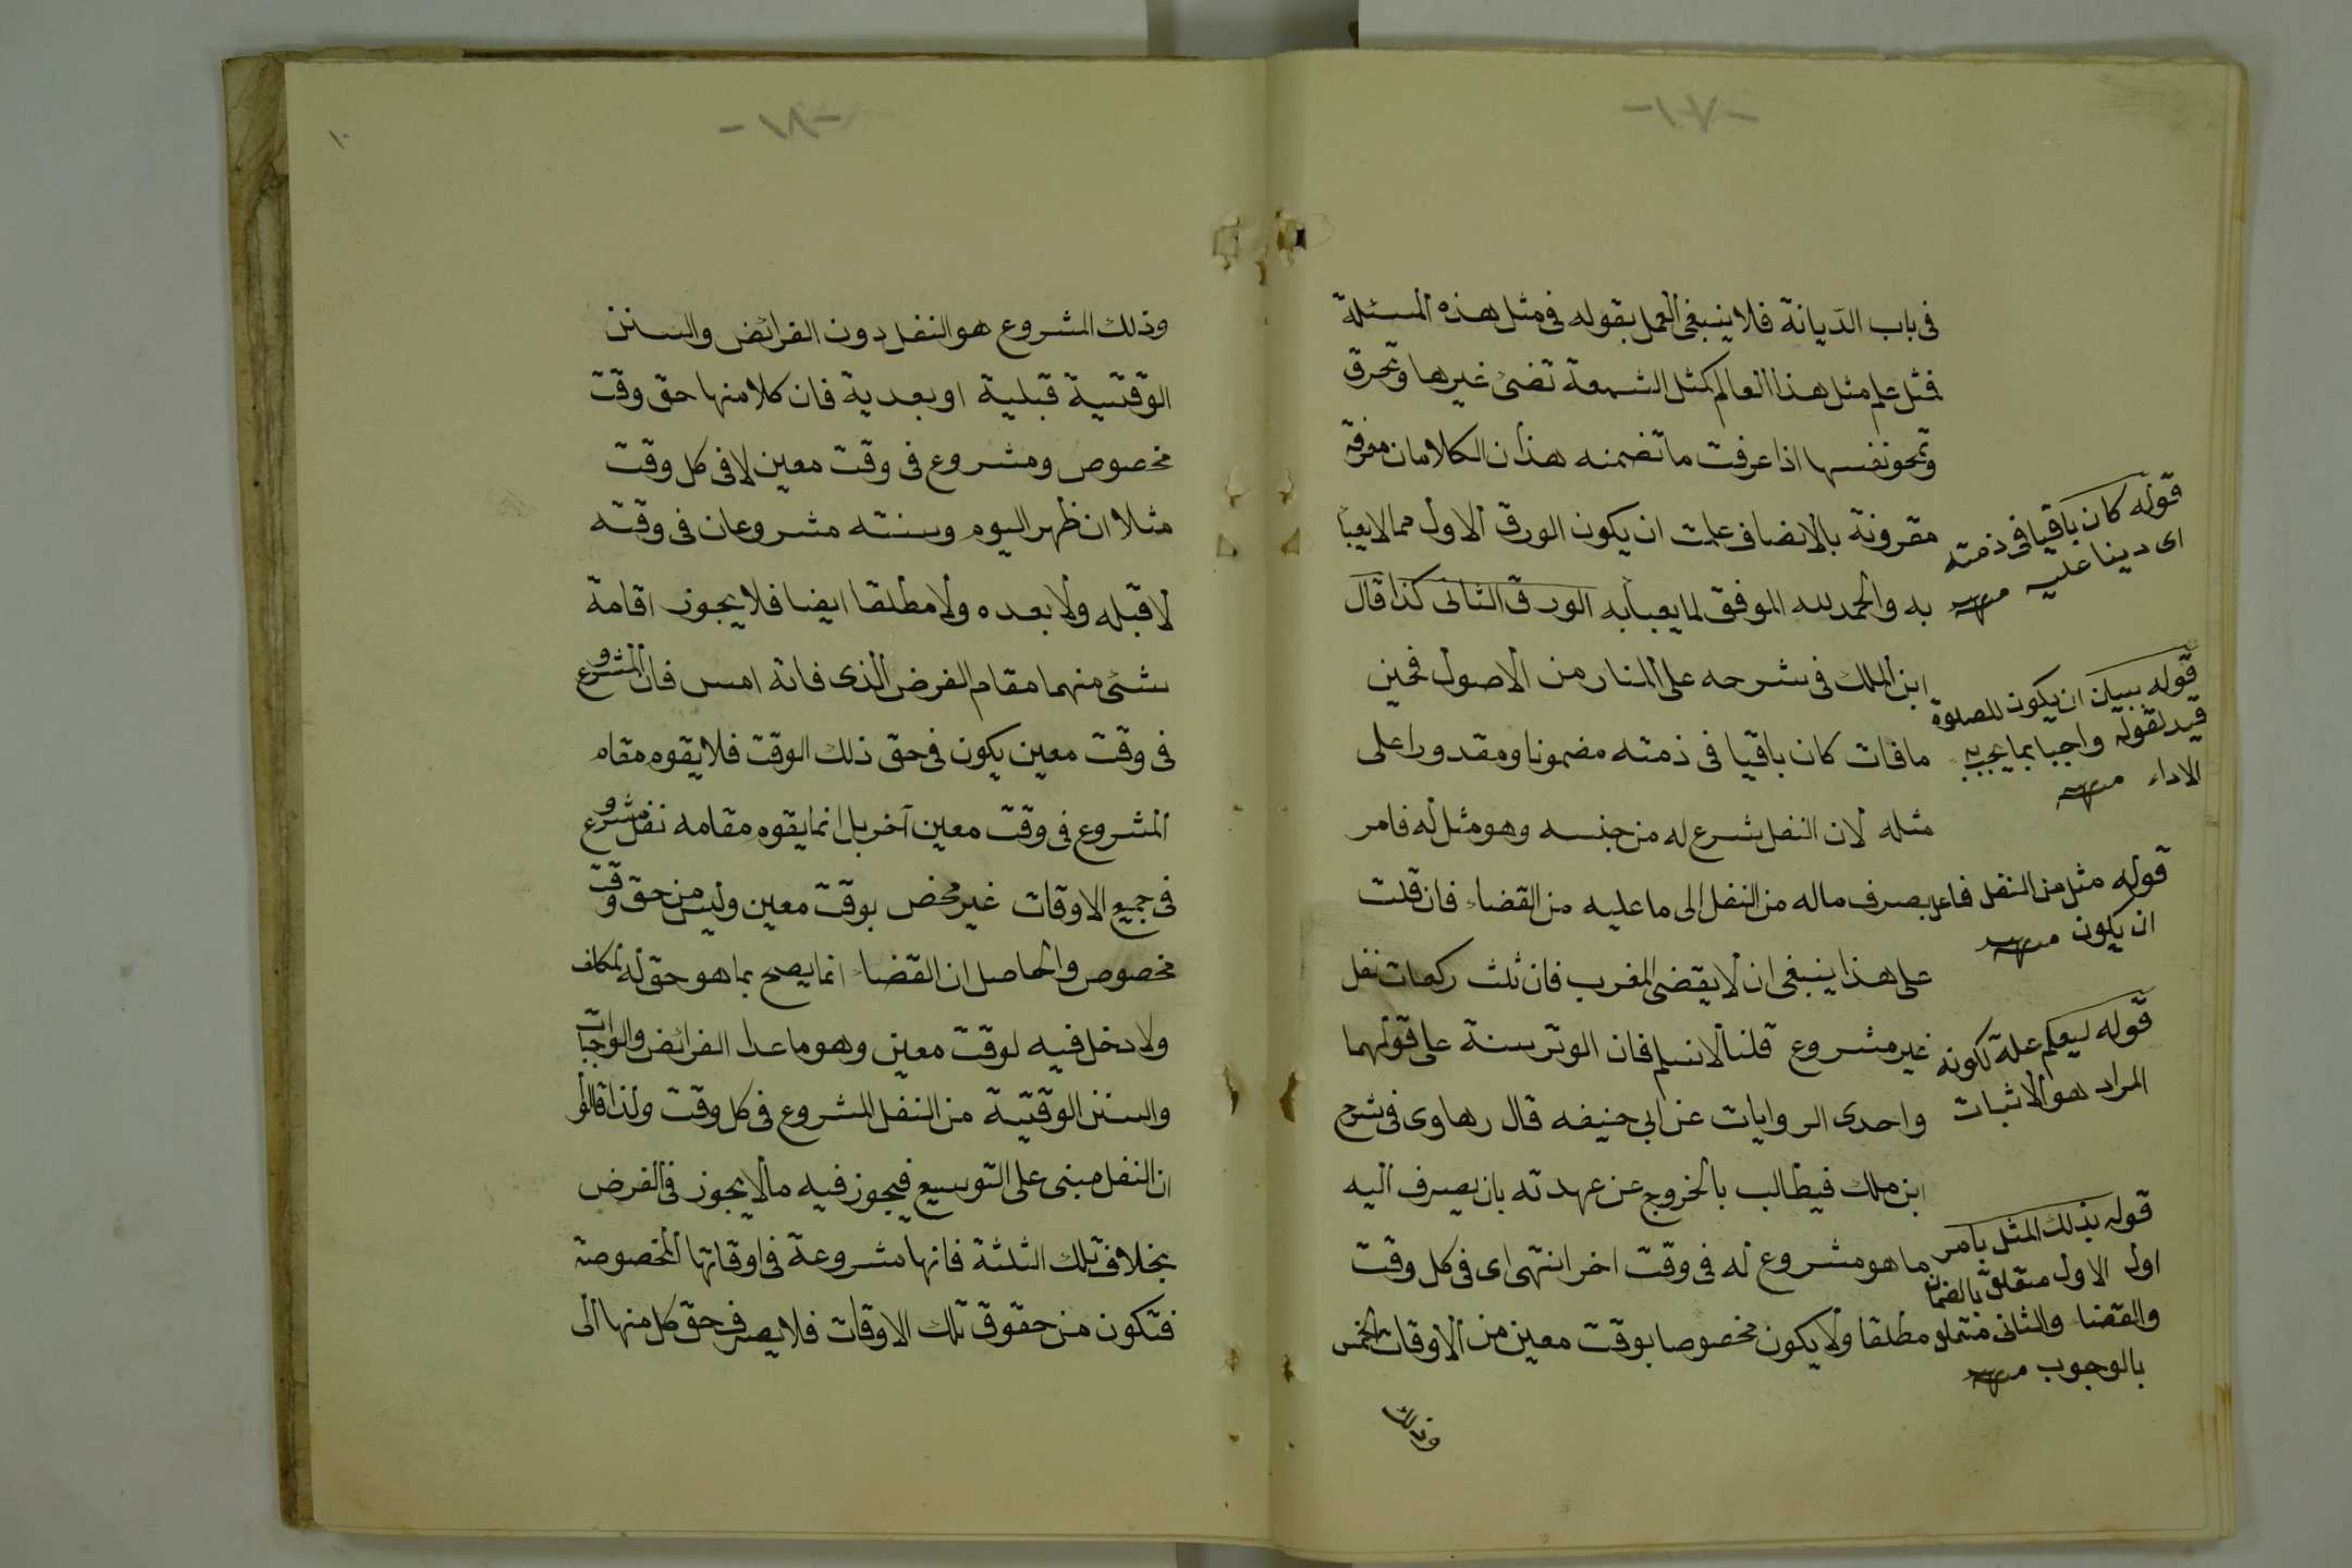 -١٧-
فى باب الدّيانة فلا ينبغى العمل بقوله فى مثل هذه المسئلة
فمثل علم مثل هذا العالم كمثل الشمعة تضئ غيرها وتحرق
وتمحو نفسها اذا عرفت ما تضمنه هذان الكلامان معرفة
مقرونة بالانصاف علمت ان يكون الورق الاول مما لا يعبأ
به والحمد لله الموفق لما يعبأ به الورق الثانى كذا قال
ابن الملك فى شرحه على المنار من الاصول فحين
ما فات كان باقيا فى ذمته مضمونا ومقدورا على
مثله لان النفل شرع له من جنسه وهو مثل له فامر
بصرف ماله من النفل الى ما عليه من القضاء فان قلت
على هذا ينبغى ان لا يقضى المغرب فان ثلث ركعات نفل
غير مشروع قلنا لا نسلم فان الوتر سنة على قولهما
واحدى الروايات عن ابى حنيفه قال رهاوى فى شرح
ابن ملك فيطالب بالخروج عن عهدته بان يصرف اليه
ما هو مشروع له فى وقت اخر انتهى اى فى كل وقت
مطلقا ولا يكون مخصوصا بوقت معين من الاوقات الخمس
وذلك
قوله كان باقيا فى ذمته
اى دينا عليه منه
قوله ببيان ان يكون للصلوة
قيد لقوله واجبا بما يجب به
الاداء منه
قوله مثل من النفل فاعل
ان يكون منه
قوله ليعلم علة لكونه
المراد هو الاثبات
قوله بذلك المثل بامر
اول الاول متعلق بالضمان
والقضا والثانى متعلق
بالوجوب منه
-١٨-
١٠
وذلك المشروع هو النفل دون الفرائض والسنن
الوقتية قبلية او بعدية فان كلا منها حق وقت
مخصوص ومشروع فى وقت معين لا فى كل وقت
مثلا ان ظهر اليوم وسنته مشروعان فى وقته
لا قبله ولا بعده ولا مطلقا ايضا فلا يجوز اقامة
شئ منهما مقام الفرض الذى فاته امس فان المشروع
فى وقت معين يكون فى حق ذلك الوقت فلا يقوم مقام
المشروع فى وقت معين آخر بل انما يقوم مقامه نفل مشروع
فى جميع الاوقات غير مخص بوقت معين وليس من حق وقت
مخصوص والحاصل ان القضاء انما يصح بما هو حق له لمكلف
ولا دخل فيه لوقت معين وهو ما عدا الفرائض والواجبات
والسنن الوقتية من النفل المشروع فى كل وقت ولذا قالوا
ان النفل مبنى على التوسيع فيجوز فيه ما لا يجوز فى الفرض
بخلاف تلك الثلثة فانها مشروعة فى اوقاتها المخصوصة
فتكون من حقوق تلك الاوقات فلا يصرف حق كل منها الى